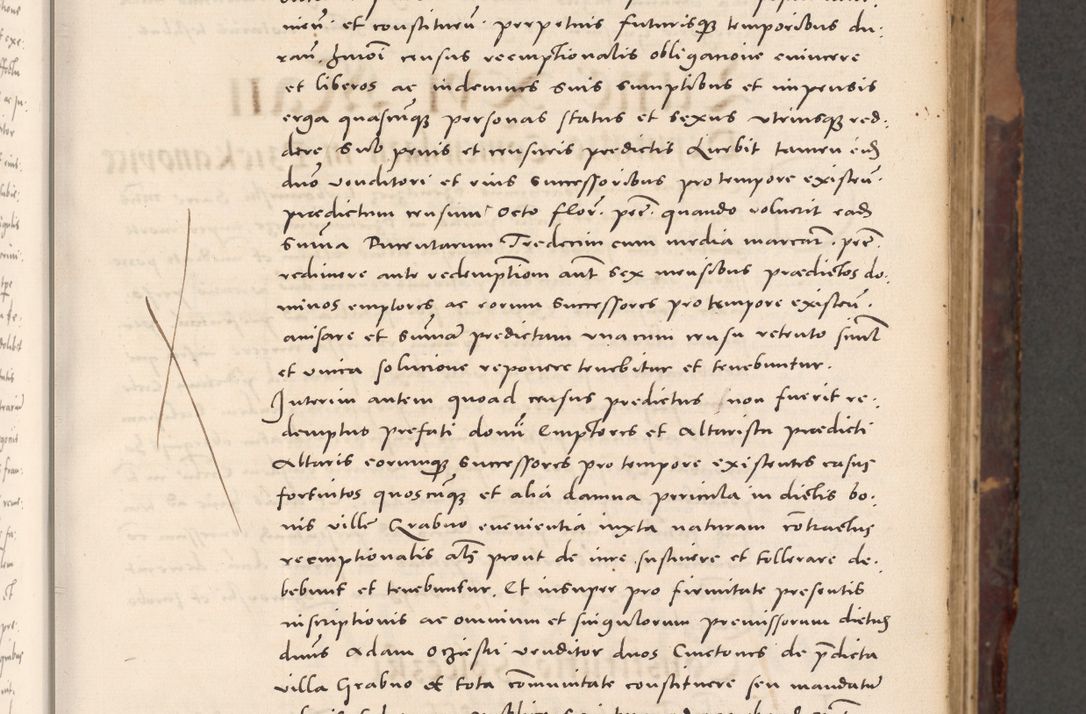 nieñ et constitueñ perpetuis futurisqȝ temporibus du-
rañ huiõi census reemptionalis obligacione evincere
et liberos ac indemnes suis sumptibus et impensis
erga quascūqȝ personas status et sexus utriusqȝ red-
dere sub penis et censuris predictis Licebit tamen eid
dno venditori et eius successoribus pro tempore existeñ
prædictum censum Octo flor. pec. quando voluerit ead
summa Ducentarum Tredecim cum media marcar. pec.
redimere ante redemptiom aut sex mensibus prædictos do-
minos emptores ac eorum successores pro tempore existeñ
avisare et summã predictam unacum censu retento simul
et unica solucione reponere tenebitur et tenebuntur.
Interim autem quoad census predictus non fuerit re-
demptus prefati domi Emptores et Altarista prædicti
Altaris eorumqȝ successores pro tempore existentes casus
fortuitos quoscūqȝ et alia damna pericula in dictis bo-
nis ville Grabno evenientia iuxta naturam cõtractus
reemptionalis als prout de iure sustinere et tollerare de-
bebunt et tenebuntur. Et insuper pro firmitate presentis
inscriptionis ac omnium et singulorum premissorum dictus
dnus Adam venditor dnos Cmetones de pdicta
villa Grabno et tota cõmunitate constituere seu mandatũ